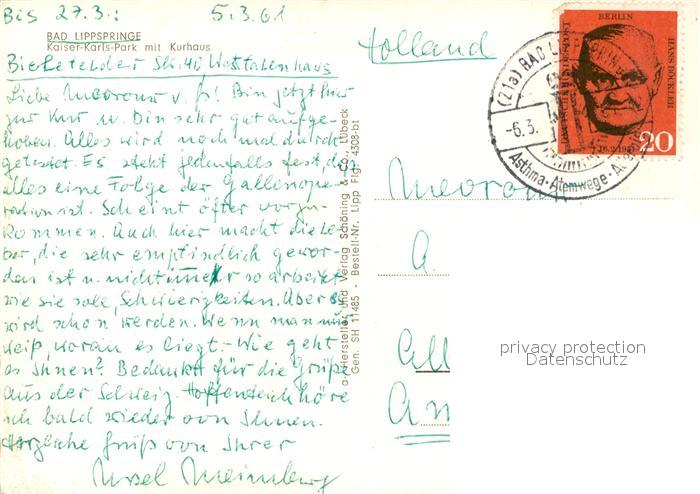 Bis 27.3.: 5.3.61
BAD LIPPSPRINGE
Kaiser-Karls-Park mit Kurhaus
Bielefelder Str. 40, Westfalenhaus
Liebe Mevrouw v. ! Bin jetzt hier
zur Kur u. bin sehr gut aufge-
hoben. Alles wird noch mal durch
getestet. Es steht jedenfalls fest, daß
alles eine Folge der Gallenope-
ration ist. Scheint öfter vorzu-
kommen. Auch hier macht die Le-
ber, die sehr empfindlich gewor-
den ist u. nicht immer so arbeitet
wie sie soll, Schwierigkeiten. Aber es
wird schon werden. Wenn man nur
weiß, woran es liegt. - Wie geht
es Ihnen? Bedankt für die Grüße
aus der Schweiz. Hoffentlich höre
ich bald wieder von Ihnen.
Herzliche Grüße von Ihrer
Ursel
a. Hersteller und Verlag Schöning & Co., Lübeck
Gen. SH 11485 - Bestell-Nr. Lipp Flg. 4308-bt
Holland
Mevrouw
A.
All
Am
BERLIN
HANS BÖCKLER
16.2.1951
20
(21a) BAD LIPPSPRINGE
-6.3.
Asthma-Atemwege-A
privacy protection
Datenschutz